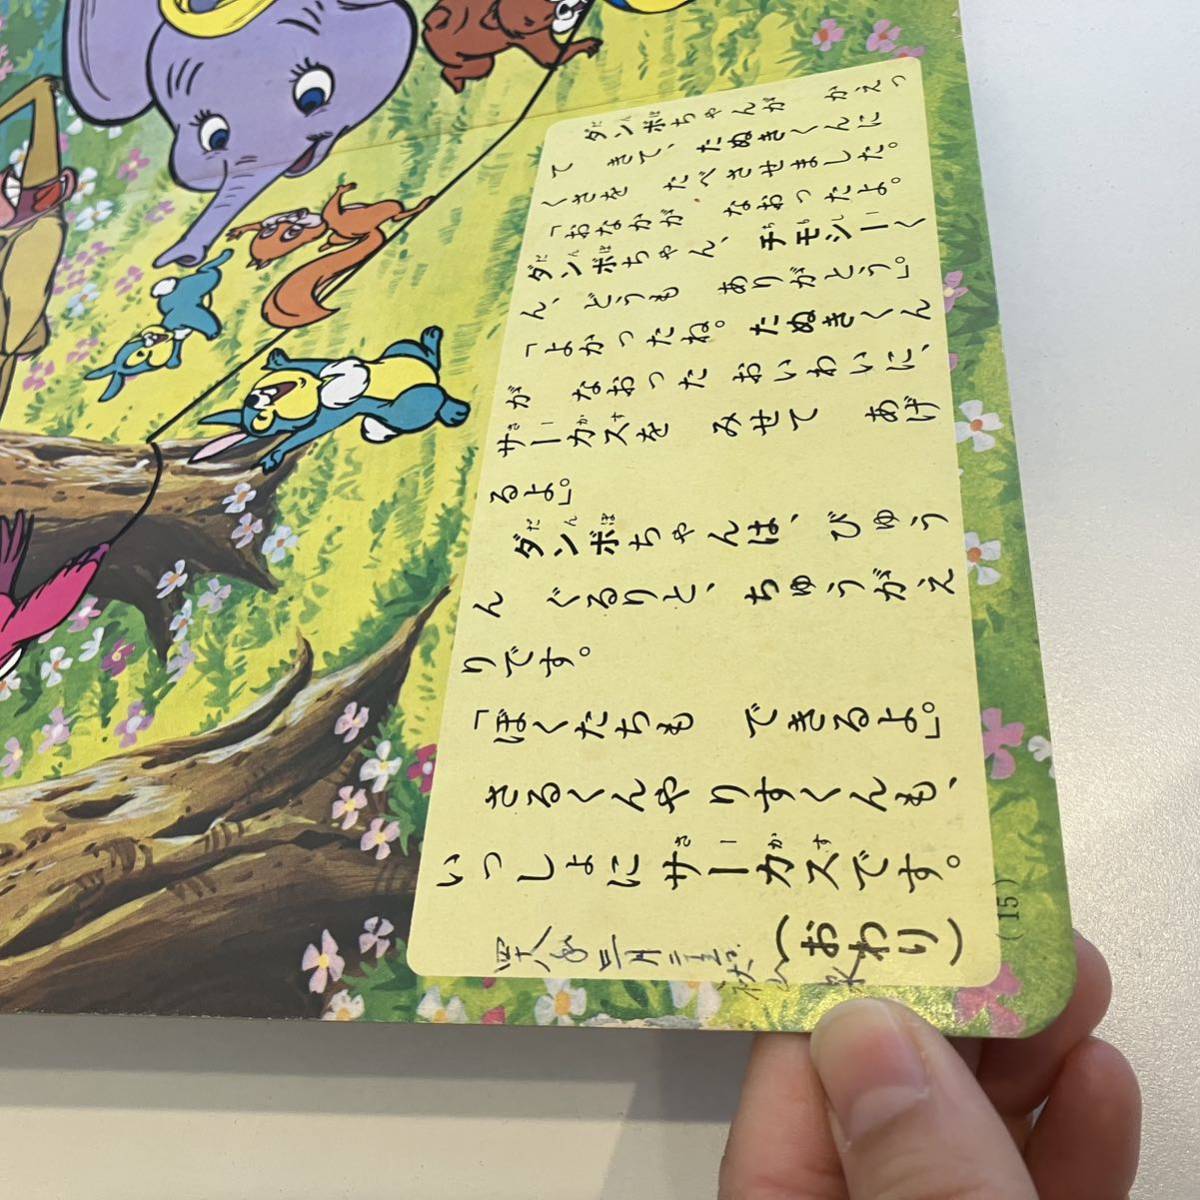 ダンボちゃんが　かえっ
て　きて、たぬきくんに
くさを　たべさせました。
「おなかが　なおったよ。
ダンボちゃん、チモシーく
ん、どうも　ありがとう」。
「よかったね。たぬきくん
が　なおった　おいわいに、
サーカスを　みせて　あげ
るよ」。
ダンボちゃんは、びゅう
ん　ぐるりと、ちゅうがえ
りです。
「ぼくたちも　できるよ」。
さるくんやりすくんも、
いっしょにサーカスです。
(おわり)
(15)